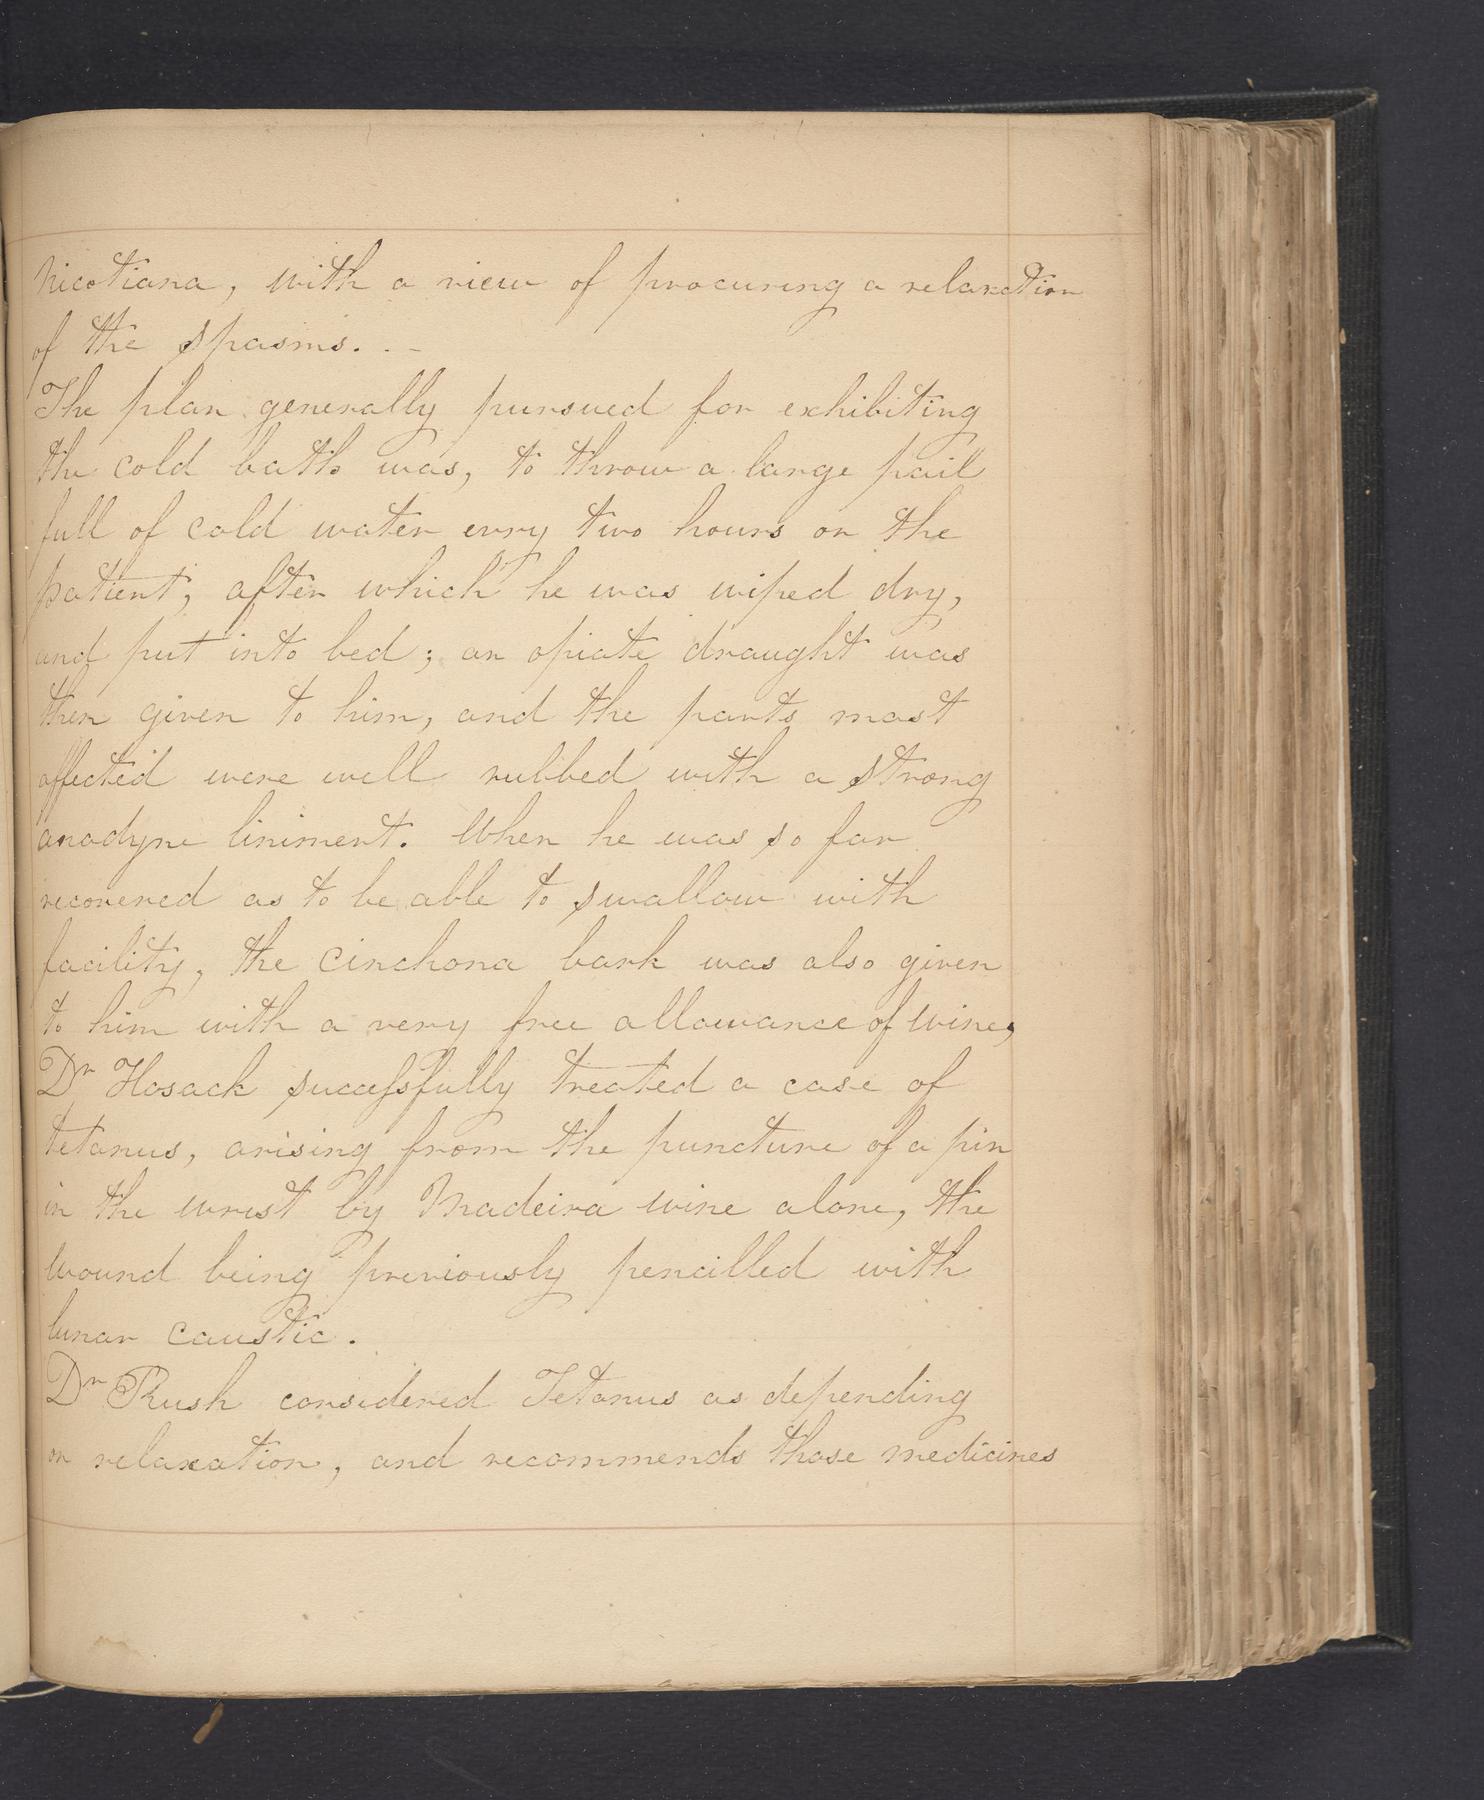 Nicotiana, with a view of procuring a relaxation
of the spasms. . –
The plan generally pursued for exhibiting
the cold bath was, to throw a large pail
full of cold water evry two hours on the
patient; after which he was wiped dry,
and put into bed; an opiate draught was
then given to him, and the parts most
affected were well rubbed with a strong
anodyne liniment. When he was so far
recovered as to be able to swallow with
facility, the cinchona bark was also given
to him with a very free allowance of wine,
Dr Hosack successfully treated a case of
tetanus, arising from the puncture of a pin
in the wrist by Madeira wine alone, the
wound being previously pencilled with
lunar caustic.
Dr Rush considered Tetanus as depending
on relaxation, and recommends those medicines